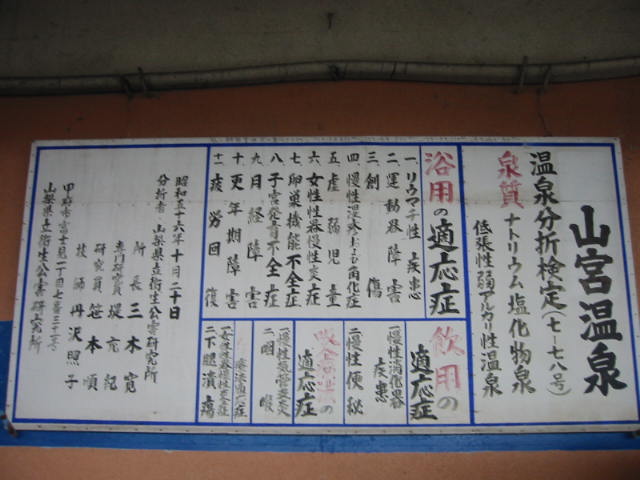 山宮温泉
温泉分析検定(七一七八号)
泉質
ナトリウム塩化物泉
低張性弱アルカリ性温泉
浴用の適応症
一、リウマチ性疾患
二、運動器障害
三、創傷
四、慢性湿疹および角化症
五、虚弱児童
六、女性性器慢性炎症
七、卵巣機能不全症
八、子宮発育不全症
九、月経障害
十、更年期障害
十一、疲労回復
飲用の適応症
一慢性消化器疾患
二慢性便秘
の適応症
一慢性気管支炎
二咽喉
二下腿潰瘍
昭和五十六年十月二十日
分析者 山梨県立衛生公害研究所
所長 三木寛
専門研究員 堤充紀
研究員 笹本順
技師 丹沢照子
甲府市富士見一丁目七番三十一号
山梨県立衛生公害研究所